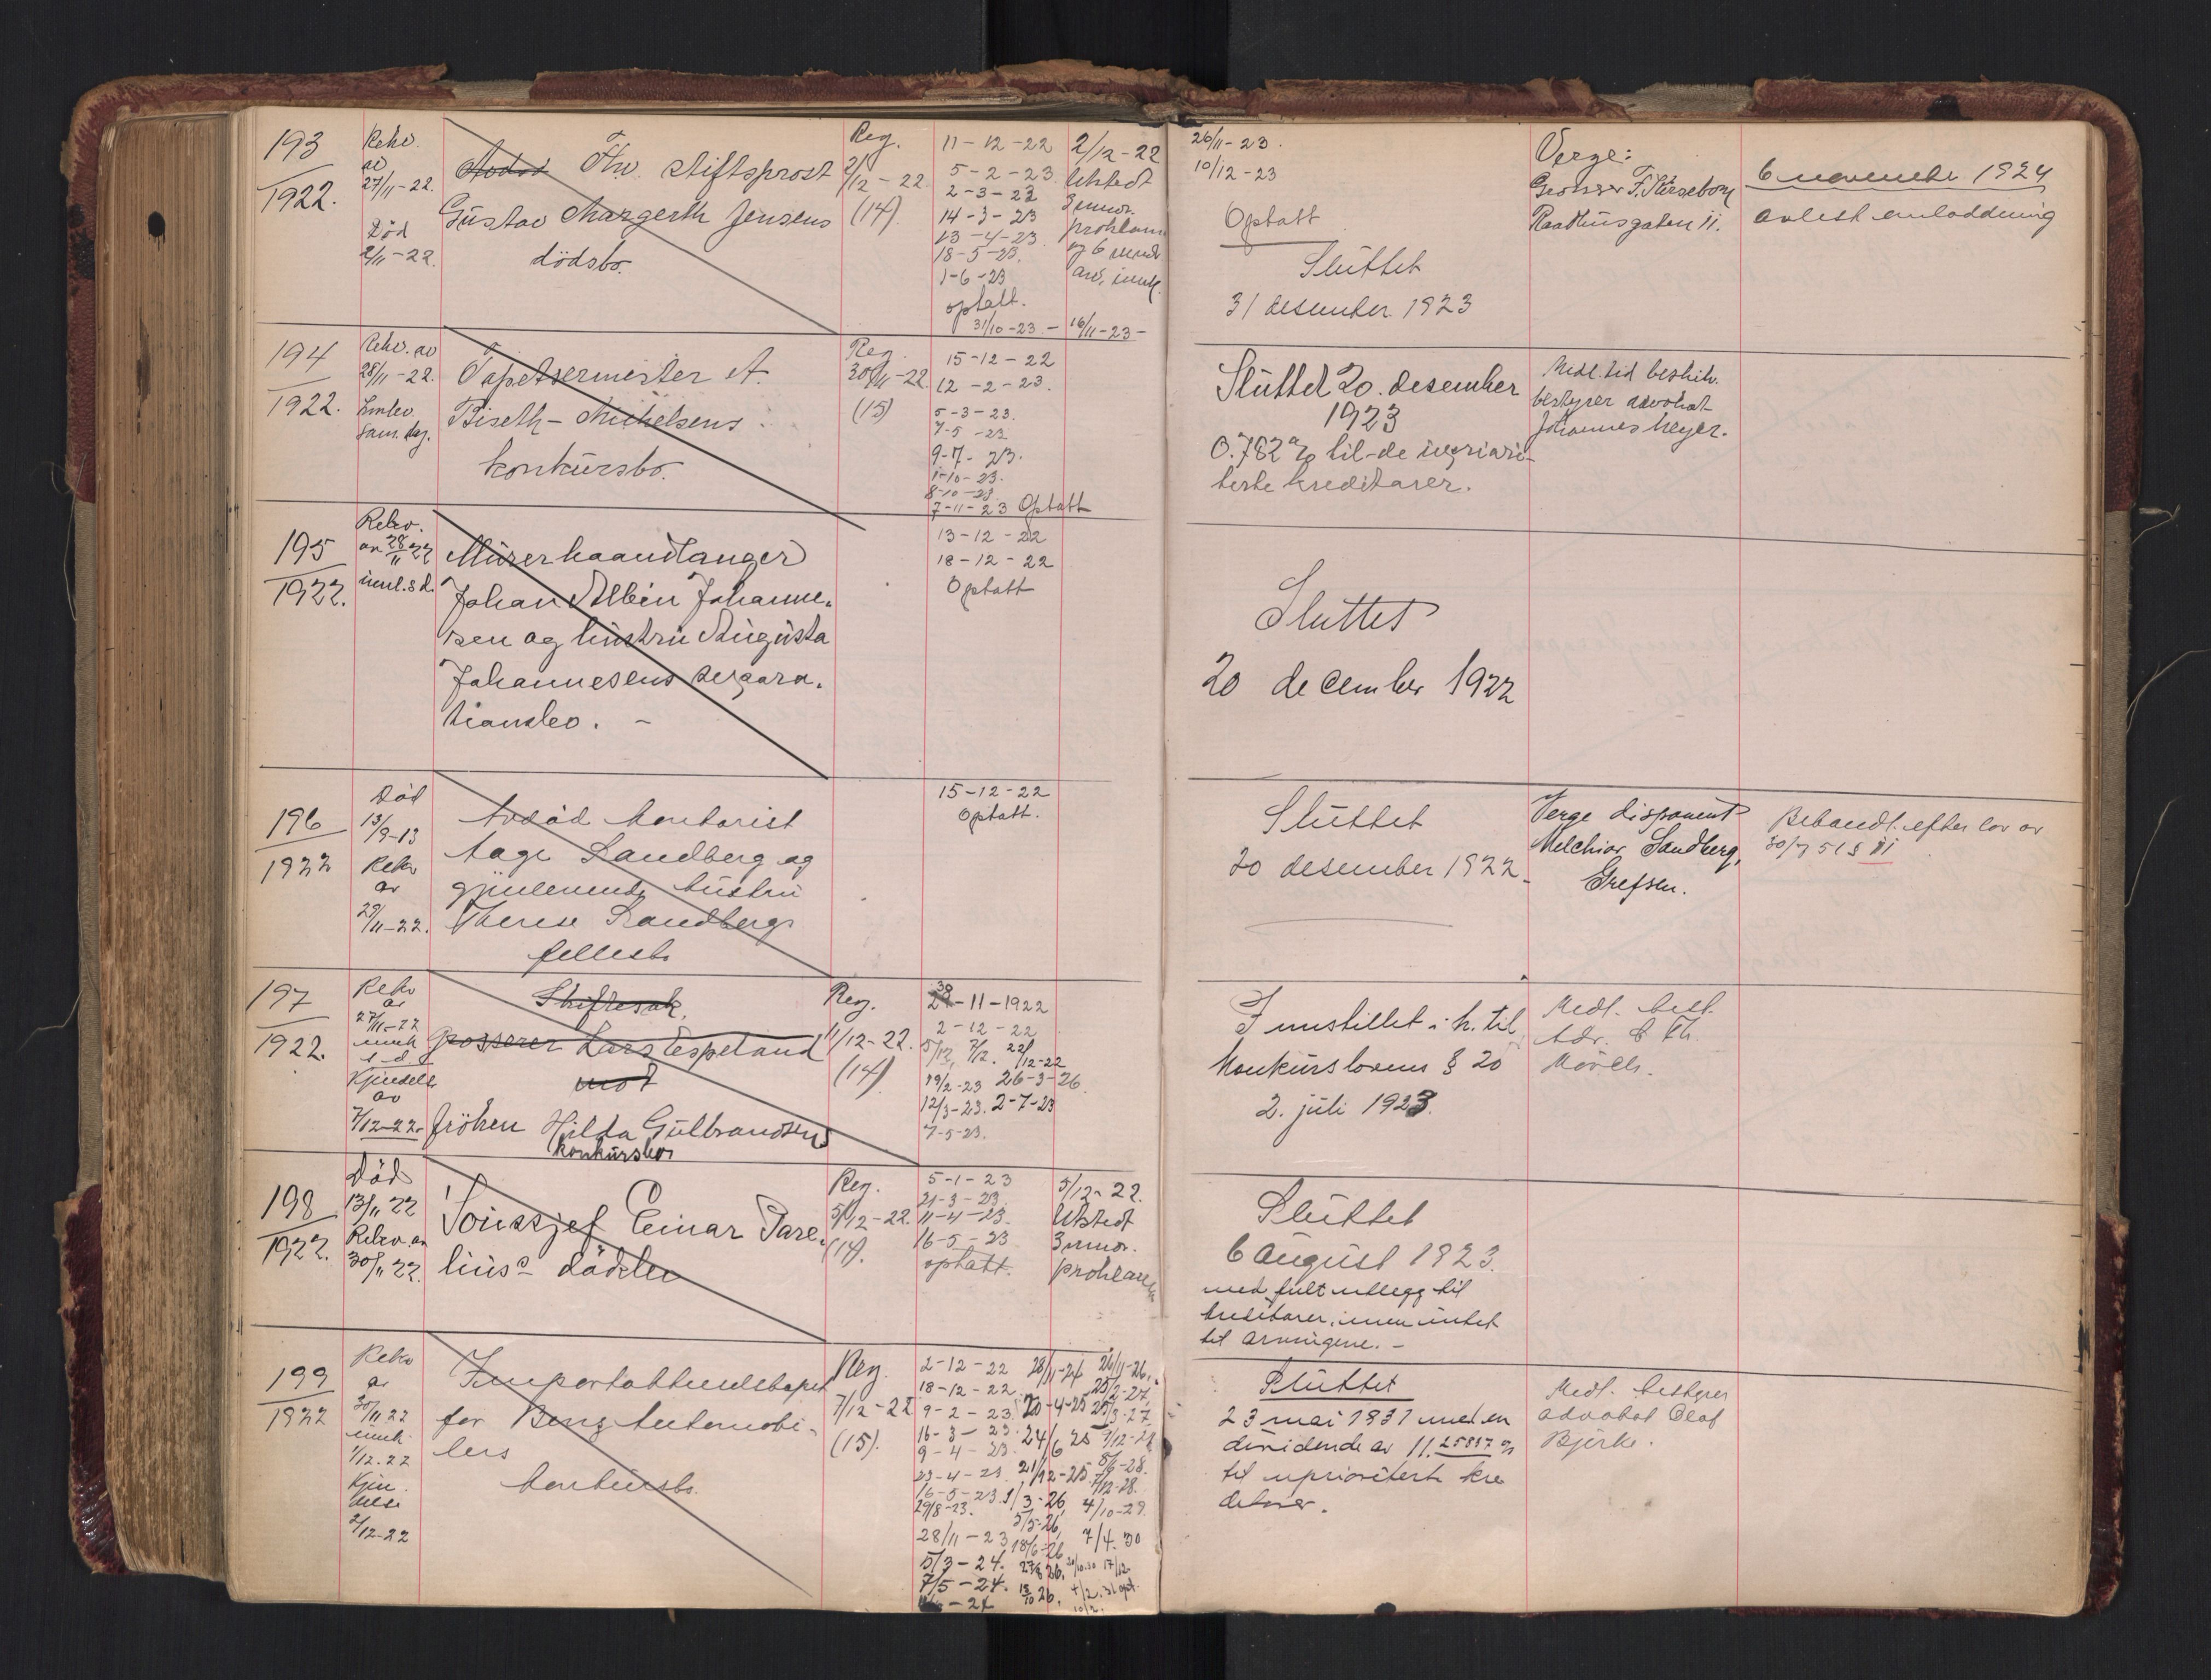 193
1922.
Rekv.
av
27/11-22.
Död
2/11-22.
Fhv. stiftsprost
Gustav Margerth Jensens
dödsbo.
Reg.
2/12-22
(14)
11-12-22
5-2-23
2-3-23
14-3-23
13-4-23
18-5-23.
1-6-23
optatt.
31/10-23.- 16/11-23-
2/12-22
Utstedt
3 mnds.
proklama
og 6 mndr
arv. innk.
26/11-23.
10/12-23
Optatt
Sluttet
31 desember 1923
Verge:
Grosser F. Kiresebom
Raadhusgaten 11.
6 november 1924
avlest anloddning
194
1922.
Rekv. av
28/11-22.
Innlev.
sam. dag.
Tapetsermester A.
Biseth-Michelsens
konkursbo.
Reg.
30/11-22.
(15)
15-12-22
12-2-23.
5-3-23.
7-5-23
9-7-23.
1-10-23.
8-10-23.
7-11-23 Optatt
Sluttet 20. desember
1923
0.782 % til de uprivri-
terte kreditorer.
Midl.tid beskik.
bestyrer advokat
Johannes Meyer.
195
1922.
Rekv.
av 28/11 22
innl. s d.
Murerhaandlanger
Johan Albin Johanne-
sen og hustru Augusta
Johannesens separa-
tionsbo. -
13-12-22
18-12-22
Optatt
Sluttet
20 december 1922
196
1922
Död
13/9-13
Rekv
av
29/11-22.
Avdöd kontorist
Aage Sandberg og
gjenlevende hustru
Therese Sandbergs
fellesbo
15-12-22
Optatt.
Sluttet
20 desember 1922-
Verge disponent
Melchior Sandberg,
Grefsen.
Behandl. efter lov av
30/7 51 § 11
197
1922.
Rekv
av
27/11-22
innk
s d
Kjendels
av
7/12-22-
Skiftesak.
grosserer Lars Espeland
mot
fröken Hilda Gulbrandsens
konkursbo
Reg.
11/12-22.
(14)
30-11-1922
2-12-22
5/12, 7/12. 22/12-22
19/2-23 26-3-26
12/3-23. 2-7-23
7-5-23.
Innstillet i h. til
Konkurslovens § 20
2. juli 1923.
Midl. best.
Adv. C Th.
Mörch.
198
1922.
Död
13/11 22
Rekv. av
30/11 22.
Toursjef Einar Pare-
lius' dödsbo
Reg.
5/12-22.
(14).
5-1-23
21-3-23.
11-4-23.
16-5-23
optatt.
5/12-22.
Utstedt
3 mnds.
proklama
Sluttet
6 august 1923.
med fult utlegg til
kreditorer, men intet
til arvingene. -
199
1922
Rekv
av
30/11 22
innk.
1/12.22
Kjen-
delse
2/12-22
Importaktieselskapet
for Benz Automobi-
lers
konkursbo.
Reg.
7/12-22
(15).
2-12-22 28/11-24 26/11-26,
18-12-22 25/2-27,
9-2-23 20-4-25 25/3-27,
16-3-23. 24/6 25
9-4-23.
23-4-23 21/12-25 5/6-28.
16-5-23. 1/3-26, 4/10-29.
29/8-23. 5/5-26,
28/11-23 18/6-26 7/4.30
5/3-24. 27/8 26, 20/10.30 17/12.
7/5-24. 18/10 26, 4/2.31 opt.
-24 10/2.
Sluttet
23 mai 1931 med en
dividende av 11.25857 %
til upriviterte kre
ditorer.
Midl. bestyrer
advokat Olaf
Bjerke.